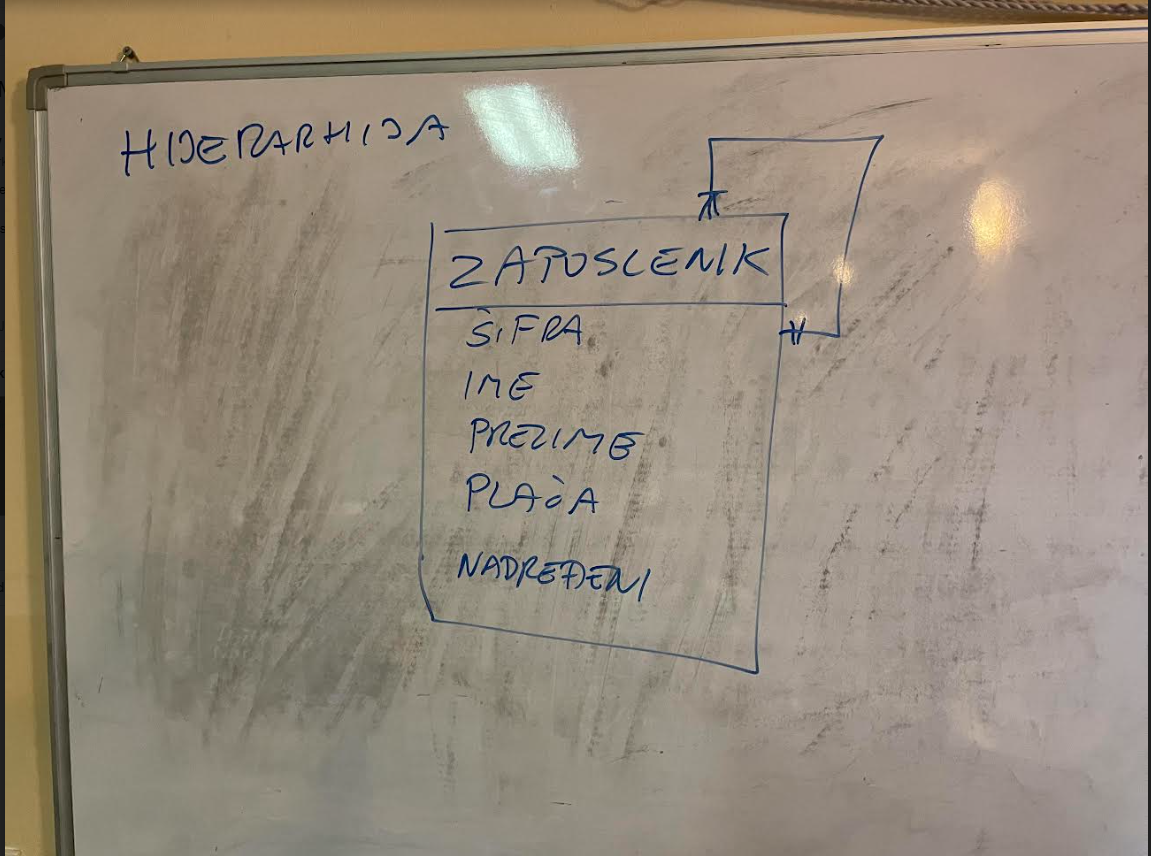 HIJERARHIJA
ZAPOSLENIK
ŠIFRA
IME
PREZIME
PLAĆA
NADREĐENI